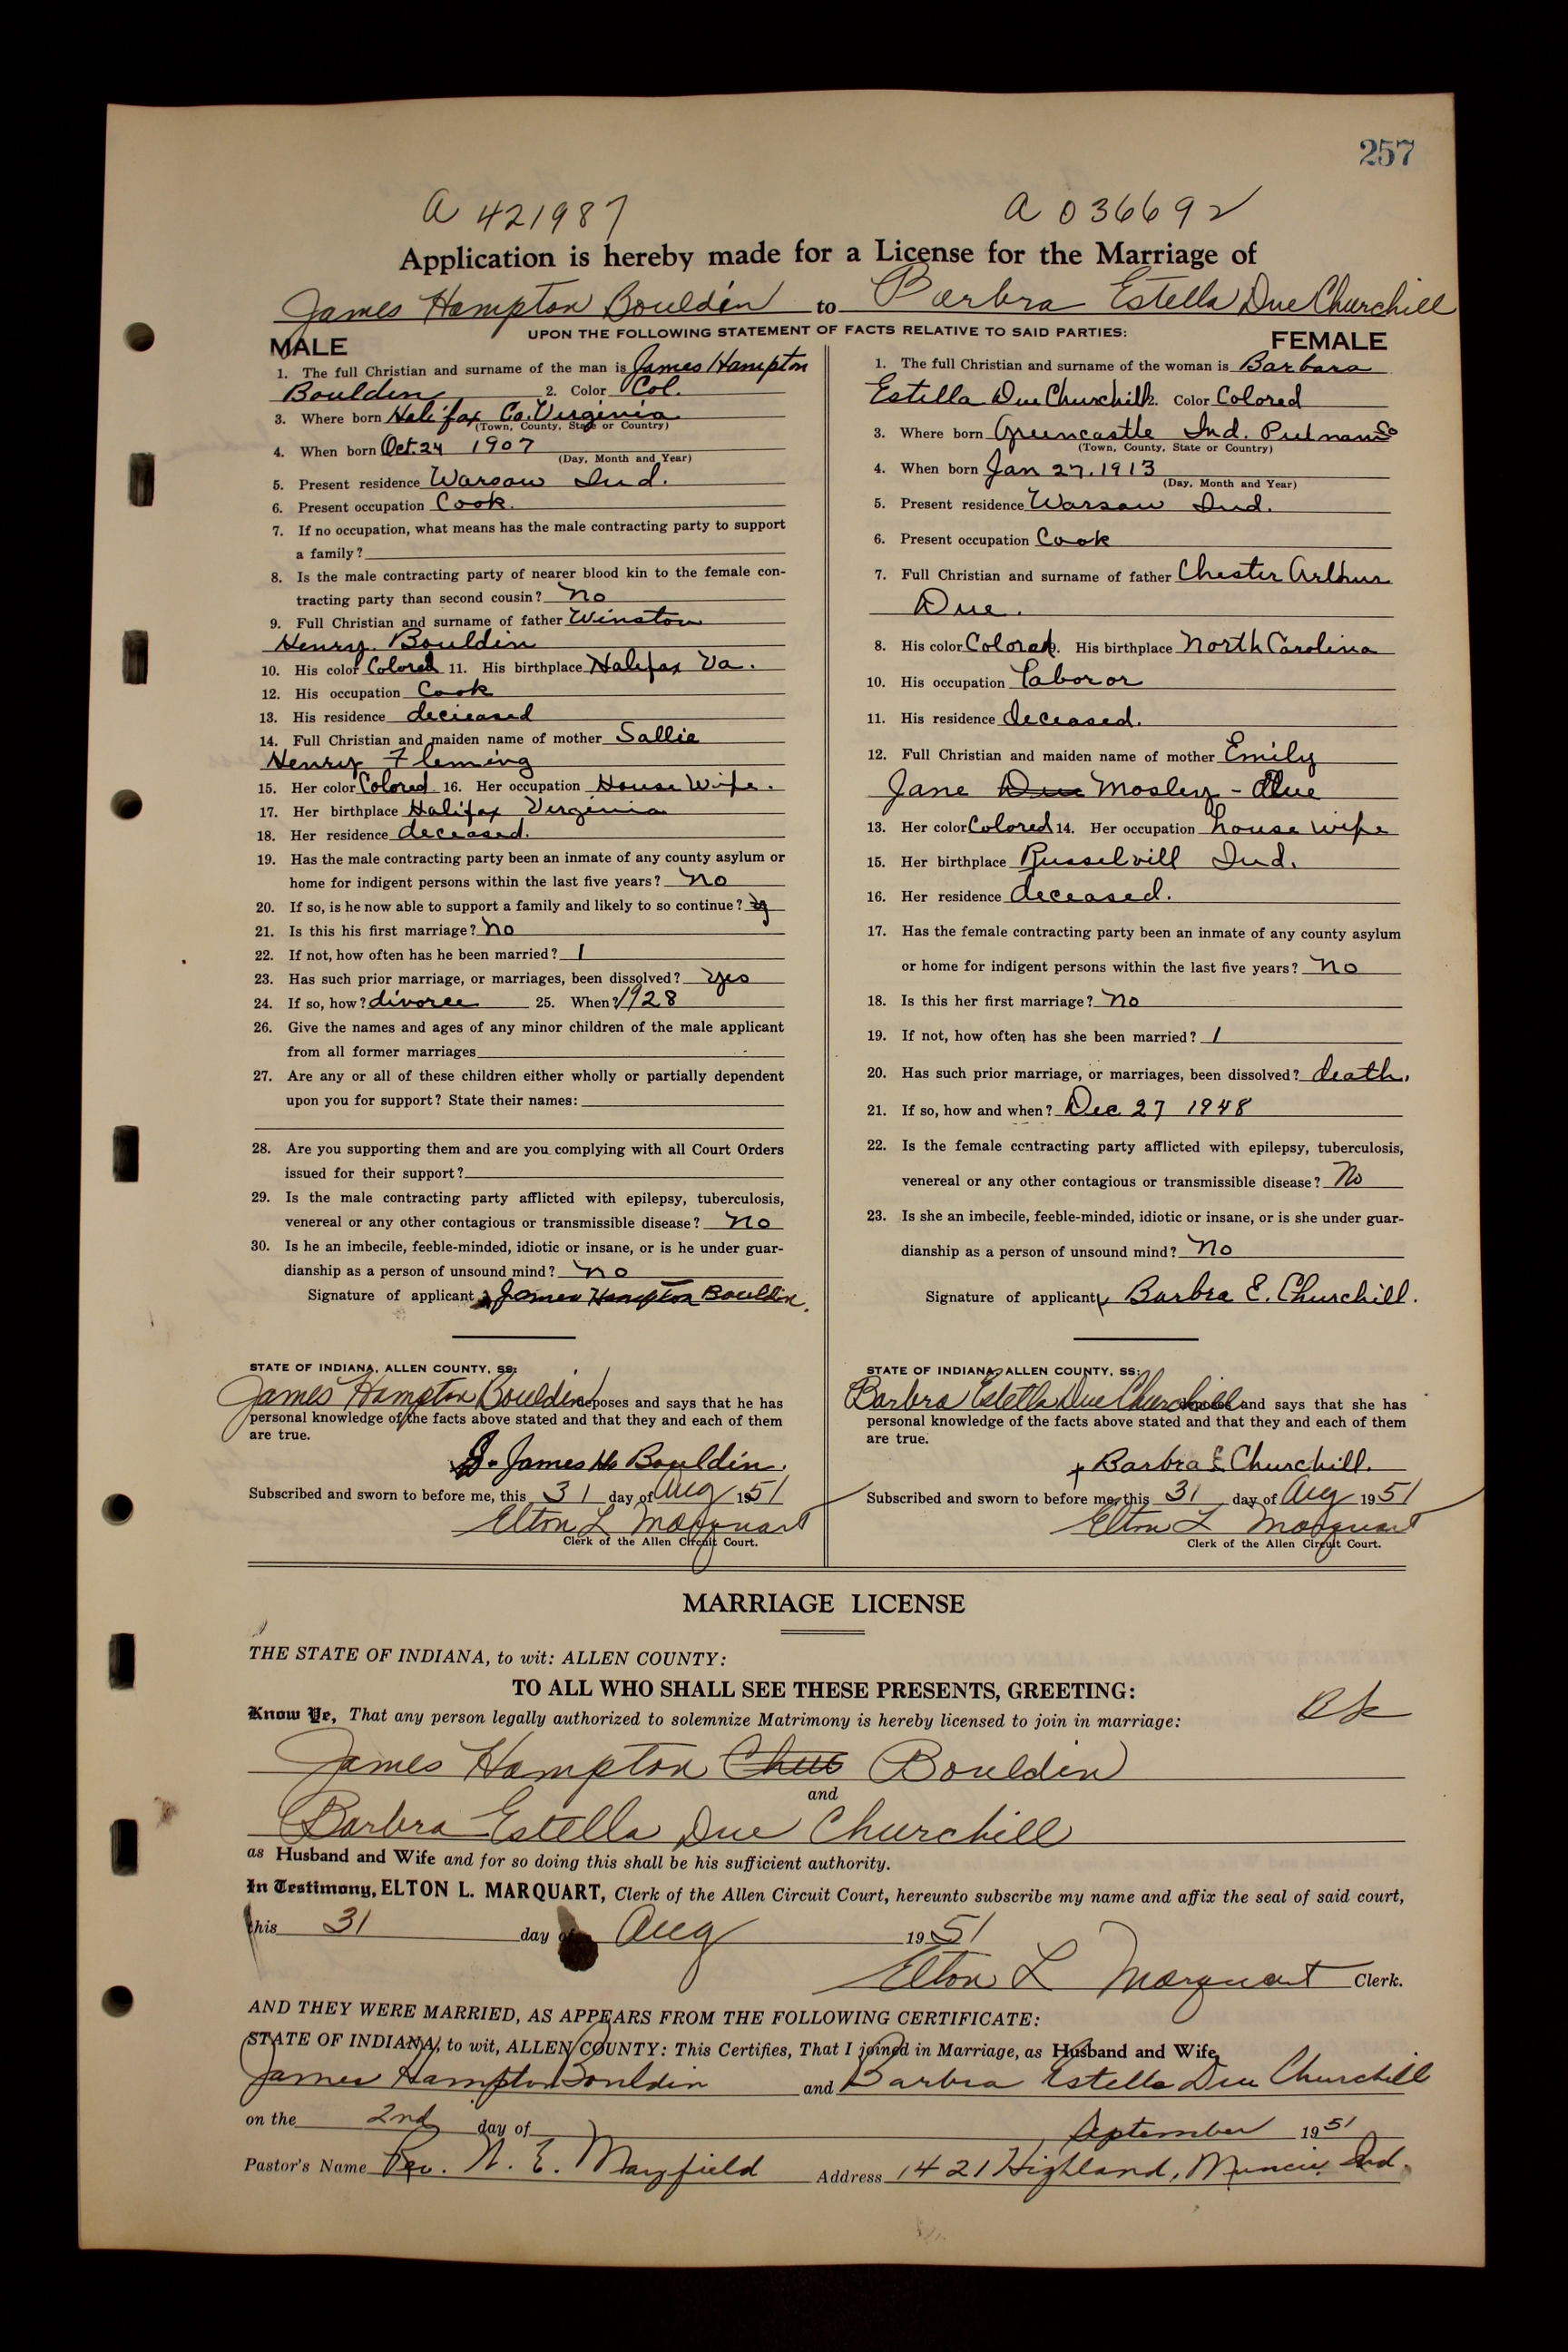 257
A 421987 A 036692
Application is hereby made for a License for the Marriage of
James Hampton Bouldin to Barbra Estella Due Churchill
UPON THE FOLLOWING STATEMENT OF FACTS RELATIVE TO SAID PARTIES:
MALE
1. The full Christian and surname of the man is James Hampton
Bouldin 2. Color Col.
3. Where born Halifax Co. Virginia
(Town, County, State or Country)
4. When born Oct. 24 1907
(Day, Month and Year)
5. Present residence Warsaw Ind.
6. Present occupation Cook.
7. If no occupation, what means has the male contracting party to support
a family?
8. Is the male contracting party of nearer blood kin to the female con-
tracting party than second cousin? no
9. Full Christian and surname of father Winston
Henry Bouldin
10. His color Colored 11. His birthplace Halifax Va.
12. His occupation Cook
13. His residence decieased
14. Full Christian and maiden name of mother Sallie
Henry Fleming
15. Her color Colored 16. Her occupation House Wife.
17. Her birthplace Halifax Virginia
18. Her residence deceased.
19. Has the male contracting party been an inmate of any county asylum or
home for indigent persons within the last five years? no
20. If so, is he now able to support a family and likely to so continue?
21. Is this his first marriage? no
22. If not, how often has he been married? 1
23. Has such prior marriage, or marriages, been dissolved? yes
24. If so, how? divorce 25. When? 1928
26. Give the names and ages of any minor children of the male applicant
from all former marriages
27. Are any or all of these children either wholly or partially dependent
upon you for support? State their names:
28. Are you supporting them and are you complying with all Court Orders
issued for their support?
29. Is the male contracting party afflicted with epilepsy, tuberculosis,
venereal or any other contagious or transmissible disease? no
30. Is he an imbecile, feeble-minded, idiotic or insane, or is he under guar-
dianship as a person of unsound mind? no
Signature of applicant James Hampton Bouldin.
STATE OF INDIANA, ALLEN COUNTY, SS:
James Hampton Bouldin deposes and says that he has
personal knowledge of the facts above stated and that they and each of them
are true.
James H. Bouldin.
Subscribed and sworn to before me, this 31 day of Aug 1951
Elton L Marquart
Clerk of the Allen Circuit Court.
FEMALE
1. The full Christian and surname of the woman is Barbara
Estella Due Churchill 2. Color Colored
3. Where born Greencastle Ind. Putnam Co
(Town, County, State or Country)
4. When born Jan 27, 1913
(Day, Month and Year)
5. Present residence Warsaw Ind.
6. Present occupation Cook
7. Full Christian and surname of father Chester Arthur
Due.
8. His color Colored 9. His birthplace North Carolina
10. His occupation Labor or
11. His residence deceased.
12. Full Christian and maiden name of mother Emily
Jane Due Mosley - Due
13. Her color Colored 14. Her occupation house wife
15. Her birthplace Russelvill Ind.
16. Her residence deceased.
17. Has the female contracting party been an inmate of any county asylum
or home for indigent persons within the last five years? no
18. Is this her first marriage? no
19. If not, how often has she been married? 1
20. Has such prior marriage, or marriages, been dissolved? death.
21. If so, how and when? Dec 27 1948
22. Is the female contracting party afflicted with epilepsy, tuberculosis,
venereal or any other contagious or transmissible disease? No
23. Is she an imbecile, feeble-minded, idiotic or insane, or is she under guar-
dianship as a person of unsound mind? no
Signature of applicant Barbra E. Churchill.
STATE OF INDIANA, ALLEN COUNTY, SS:
Barbra Estella Due Churchill deposes and says that she has
personal knowledge of the facts above stated and that they and each of them
are true.
Barbra E Churchill.
Subscribed and sworn to before me, this 31 day of Aug 1951
Elton L Marquart
Clerk of the Allen Circuit Court.
MARRIAGE LICENSE
THE STATE OF INDIANA, to wit: ALLEN COUNTY:
TO ALL WHO SHALL SEE THESE PRESENTS, GREETING:
Know Ye, That any person legally authorized to solemnize Matrimony is hereby licensed to join in marriage:
James Hampton Bouldin
and
Barbra Estella Due Churchill
as Husband and Wife and for so doing this shall be his sufficient authority.
In Testimony, ELTON L. MARQUART, Clerk of the Allen Circuit Court, hereunto subscribe my name and affix the seal of said court,
this 31 day of Aug 1951
Elton L Marquart Clerk.
AND THEY WERE MARRIED, AS APPEARS FROM THE FOLLOWING CERTIFICATE:
STATE OF INDIANA, to wit, ALLEN COUNTY: This Certifies, That I joined in Marriage, as Husband and Wife,
James Hampton Bouldin and Barbra Estella Due Churchill
on the 2nd day of September 1951
Pastor's Name Rev. N. E. Mayfield Address 1421 Highland, Muncie Ind.